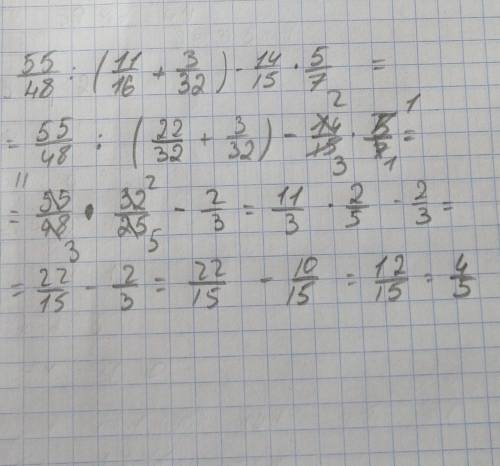 55/48 : (11/16 + 3/32) - 14/15 · 5/7 =
= 55/48 : (22/32 + 3/32) - 14/15 2 3 · 5/7 1 1 =
= 55/48 11 3 · 32/25 2 5 - 2/3 = 11/3 · 2/5 - 2/3 =
= 22/15 - 2/3 = 22/15 - 10/15 = 12/15 = 4/5